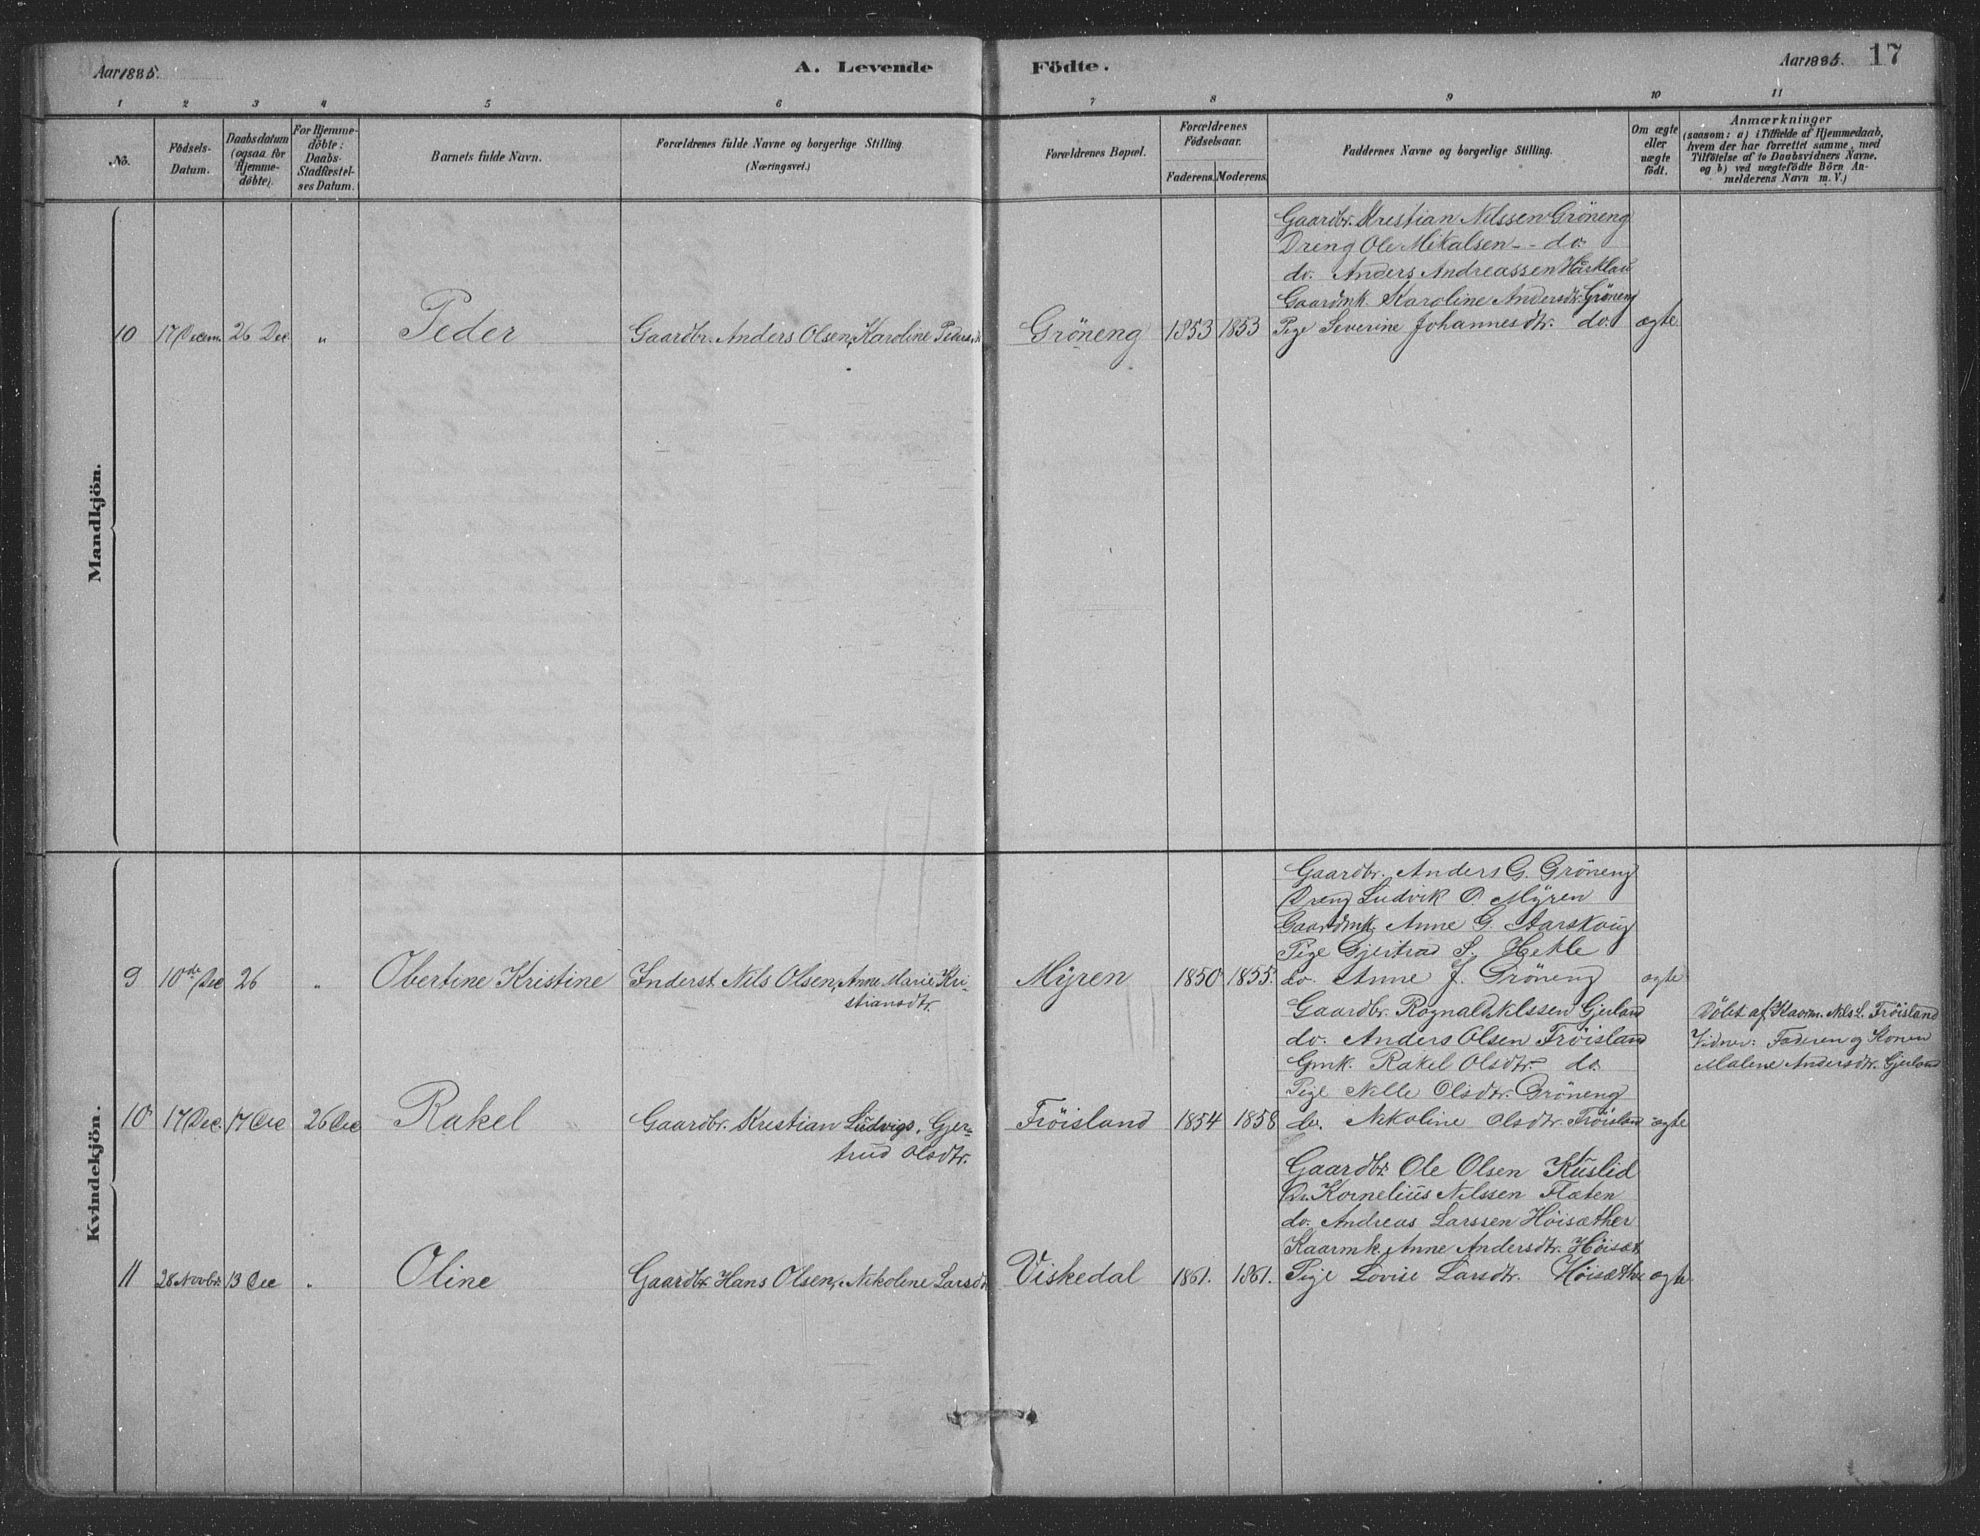 Aar 1885.
A. Levende
Födte.
Aar 1885.
17
1 2 3 4 5 6 7 8 9 10 11
No.
Födsels-
Datum.
Daabsdatum
(ogsaa for
Hjemme-
döbte).
For Hjemme-
döbte:
Daabs-
Stadfæstel-
ses Datum.
Barnets fulde Navn.
Forældrenes fulde Navne og borgerlige Stilling
(Næringsvei.)
Forældrenes Bopæl.
Forældrenes
Födselsaar.
Faderens. Moderens.
Faddernes Navne og borgerlige Stilling.
Om ægte
eller
uægte
födt.
Anmærkninger
(saasom: a) i Tilfælde af Hjemmedaab,
hvem der har forrettet samme, med
Tilföielse af to Daabsvidners Navne,
og b) ved uægtefödte Börn An-
melderens Navn m. V.)
Mandkjön.
Gaardbr. Kristian Nilssen Gröneng
Dreng Ole Mikalsen - - do.
do. Anders Andreassen Harklau
Gaardmk. Karoline Andersdtr. Gröneng
10 17 Decem. 26 Dec. " Peder Gaardbr. Anders Olsen, Karoline Pedersdt. Gröneng 1853 1853 Pige Severine Johannesdtr. do. ægte.
Kvindekjön.
Gaardbr. Anders G. Gröneng
Dreng Ludvik O. Myren
Gaardmk. Anne G. Aarskoug
Pige Gjertrud S. Hekle
9 10de Dec 26 " Obertine Kristine Inderst. Nils Olsen, Anne Marie Kri-
stiansdtr.
Myren 1850 1855. do. Anne J. Gröneng ægte
Gaardbr. Rognald Nilssen Gjerland
do. Anders Olsen Fröisland
Gmk. Rakel Olsdtr. do.
Pige Nille Olsdtr. Gröneng
Döbt af Kaarm. Nils L. Fröisland
Vidner: Faderen og Konen
Malene Andersdtr. Gjerland
10 17 Dec. 17 Dec 26 Dec Rakel Gaardbr. Kristian Ludvigs. Gjer-
trud Olsdtr.
Fröisland 1854 1858 do. Nikoline Olsdtr. Fröisland ægte
Gaardbr. Ole Olsen Kuslid
Dr. Kornelius Nilssen Flæten
do. Andreas Larssen Höisæther
Kaarmk. Anne Andersdtr. Höisæt.
11 28 Novbr. 13 Dec " Oline Gaardbr. Hans Olsen, Nikoline Larsdt. Viskedal 1861. 1861. Pige Lovise Larsdtr. Höisæthr ægte